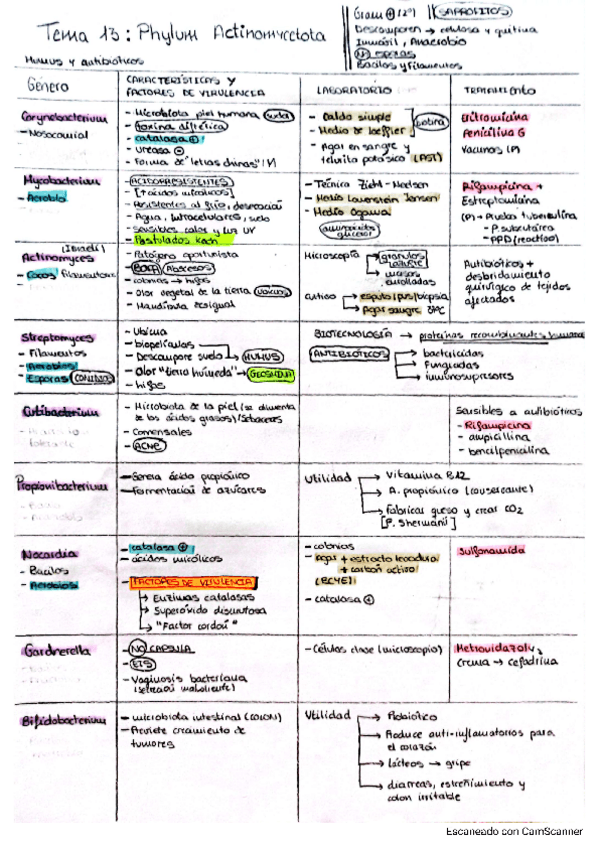 Tema 13: Phylum Actinomycetota
Humus y antibióticos
Gram ⊕ (2º) SAPROFITOS
Descomponen → celulosa y quitina
Inmóvil, Anaerobio
NO esporas
Bacilos y filamentos
Género
CARACTERÍSTICAS Y
FACTORES DE VIRULENCIA
LABORATORIO
TRATAMIENTO
Corynebacterium
- Nosocomial
- Microbiota piel humana (suda)
- toxina diftérica
- catalasa ⊕
- Ureasa -
- Forma de "letras chinas"
- Caldo simple
- Medio de loeffler
- Agar en sangre y
telurito potásico
Eritromicina
Penicilina G
Vacunas (P)
Mycobacterium
- Aerobio
- ACIDORRESISTENTES
- [↑ácidos micólicos]
- Resistentes al frío, desecación
- Agua, intracelulares, suelo
- Sensibles calor y luz UV
- Postulados Koch
- Técnica Ziehl-Neelsen
- Medio Lowenstein Jensen
- Medio Ogawa
Rifampicina +
Estreptomicina
(P) → Prueba tuberculina
- P. subcutánea
- PPD (reactivo)
Actinomyces
(Israeli)
- Cocos filamentosos
- Patógeno oportunista
- BOCA Abscesos
- colonias → hifas
- Olor vegetal de la tierra
- Mandíbula desigual
Microscopía → gránulos
AZUFRE
→ masas
enrolladas
cultivo → esputo/pus/biopsia
→ Agar sangre
Antibióticos +
desbridamiento
quirúrgico de tejidos
afectados
Streptomyces
- Filamentos
- Aerobios
- Esporas
- Ubicua
- biopelículas
- Descompone suelo → HUMUS
- Olor "tierra húmeda" → GEOSMINA
- hifas
BIOTECNOLOGÍA → proteínas recombinantes humanas
ANTIBIÓTICOS → bactericidas
→ Fungicidas
→ inmunosupresores
Cutibacterium
- Microbiota de la piel (se alimenta
de los ácidos grasos) / Sebáceas
- Comensales
- ACNÉ
Sensibles a antibióticos
- Rifampicina
- ampicilina
- bencilpenicilina
Propionibacterium
- Genera ácido propiónico
- Fermentación de azúcares
Utilidad → Vitamina B12
→ A. propiónico (conservante)
→ fabricar queso y crear CO2
[P. Shermanii]
Nocardia
- Bacilos
- Aerobios
- catalasa ⊕
- ácidos micólicos
- FACTORES DE VIRULENCIA
→ Enzimas catalasas
→ Superóxido dismutasa
→ "Factor cordón"
- colonias
- Agar + extracto levadura
+ carbón activo
(BCYE)
- catalasa ⊕
Sulfonamida
Gardnerella
- NO CAPSULA
- ETS
- Vaginosis bacteriana
(secreción maloliente)
- Células clave (microscopio)
Metronidazol
crema → cefadrina
Bifidobacterium
- microbiota intestinal (COLON)
- Previene crecimiento de
tumores
Utilidad → Probiótico
→ Produce anti-inflamatorios para
el corazón
→ lácteos → gripe
→ diarreas, estreñimiento y
colon irritable
Escaneado con CamScanner